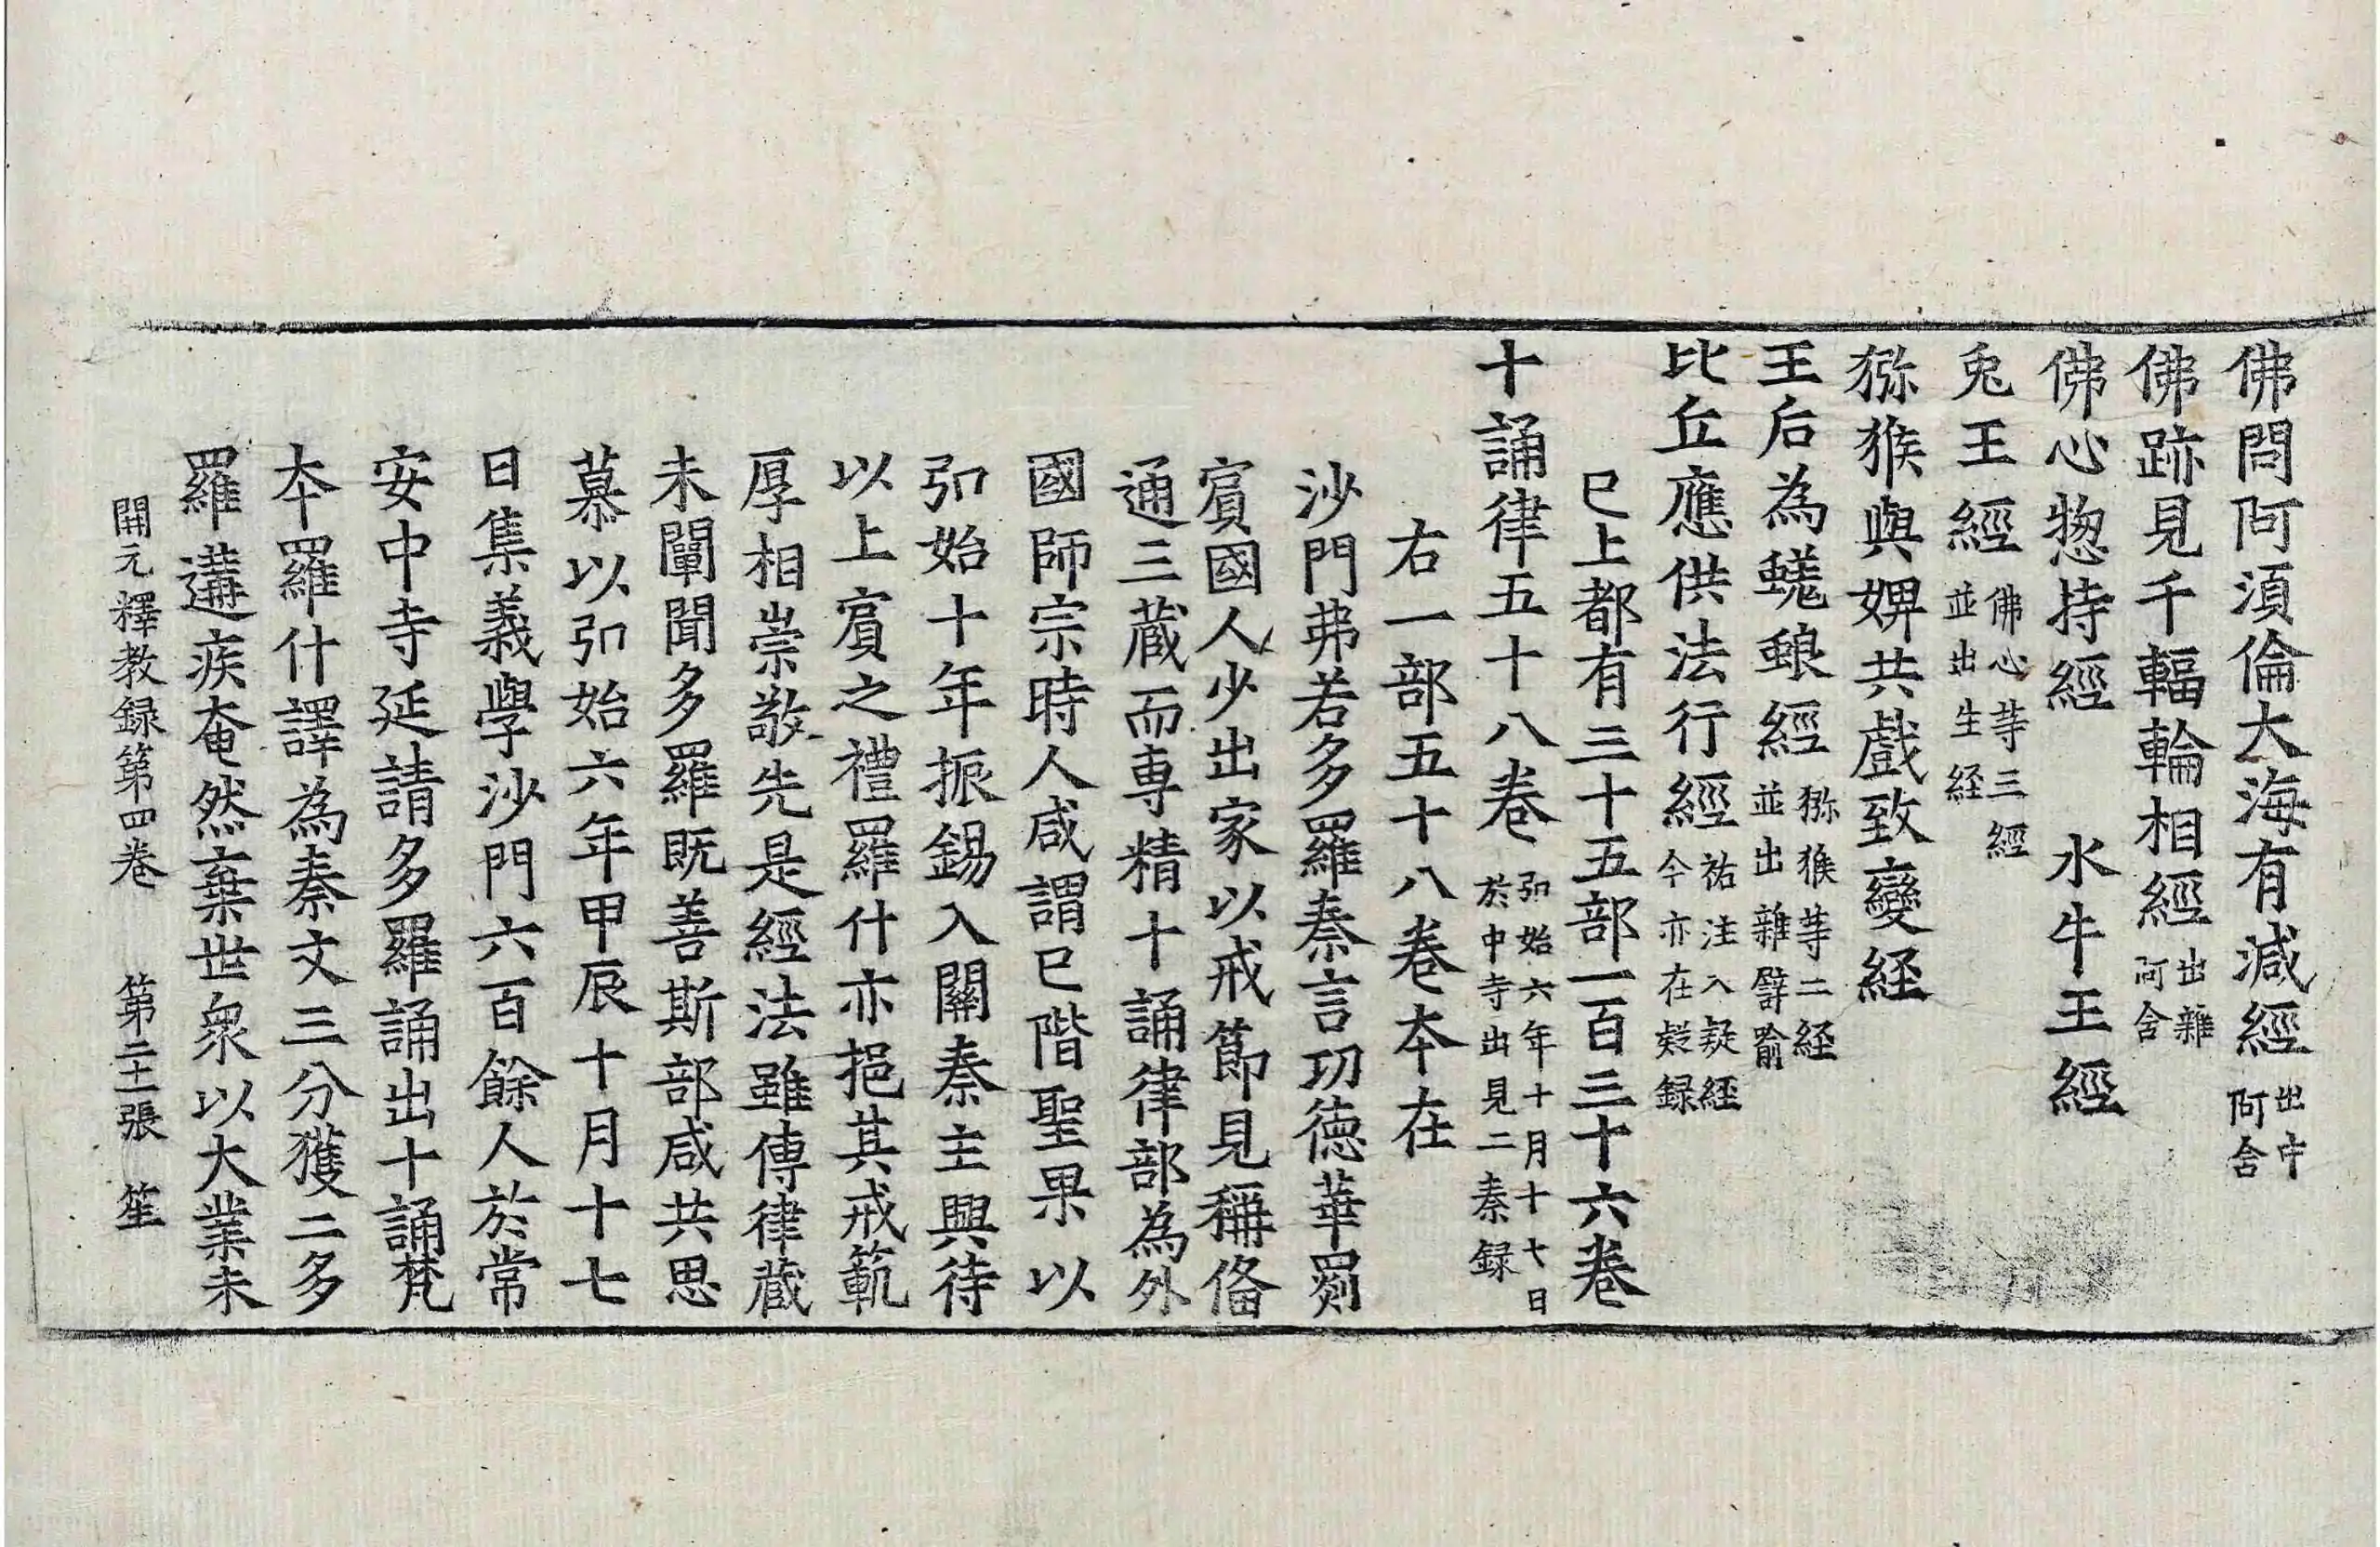 佛問阿須倫大海有減經出中阿含
佛跡見千輻輪相經出雜阿含
佛心惣持經　水牛王經
兎王經佛心䓁三經並出生経
猕猴與婢共戲致變経
王后為蜣蜋經猕猴䓁二経並出雜譬喻
比丘應供法行經祐注入疑經今亦在疑録
已上都有三十五部一百三十六卷
十誦律五十八卷弘始六年十月十七日於中寺出見二秦録
右一部五十八卷本在
沙門弗若多羅秦言功德華罽
賓國人少出家以戒節見稱俻
通三蔵而專精十誦律部為外
國師宗時人咸謂已階聖果以
弘始十年振錫入關秦主興待
以上賓之禮羅什亦挹其戒範
厚相崇敬先是經法雖傳律蔵
未闡聞多羅既善斯部咸共思
慕以弘始六年甲辰十月十七
日集義學沙門六百餘人於常
安中寺延請多羅誦出十誦梵
本羅什譯為秦文三分獲二多
羅遘疾奄然棄世衆以大業未
開元釋教録第四卷　第二十二張　笙